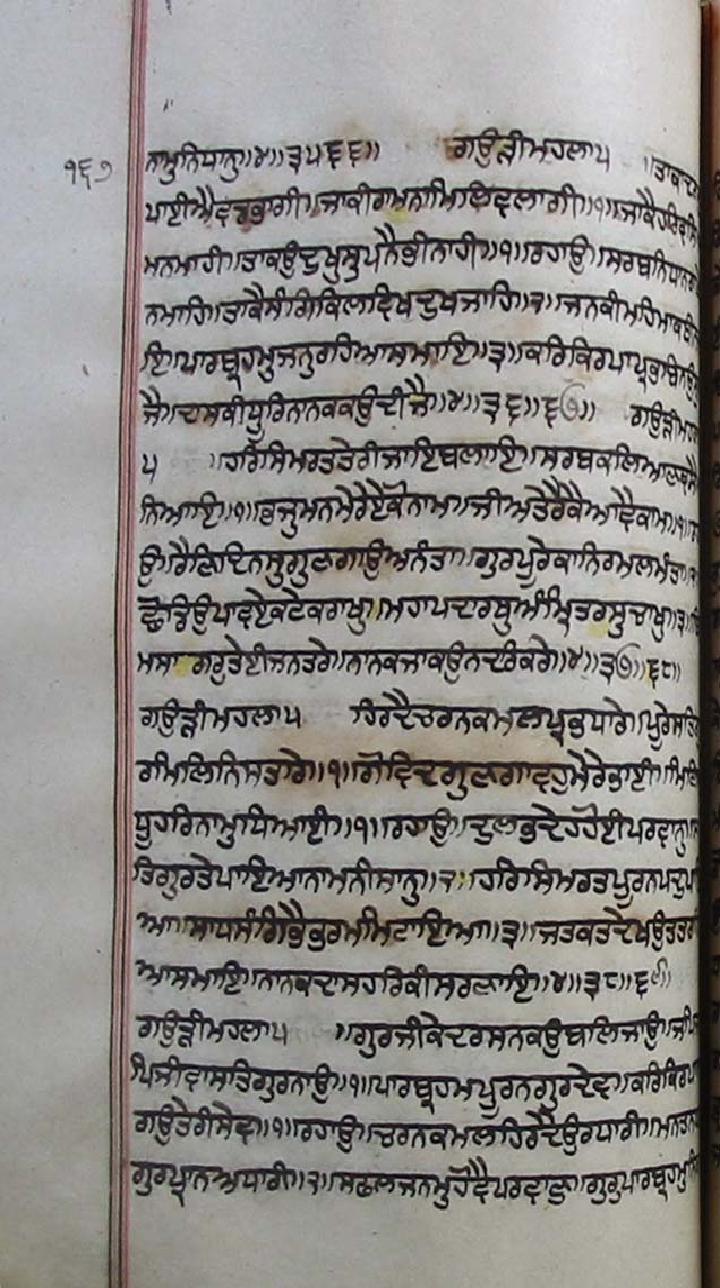 ੧੬੭
ਨਾਮੁਨਿਧਾਨੁ॥੪॥੩੫॥੬੬॥ ਗਉੜੀਮਹਲਾ੫ ॥ਤਾਕਾਦਰ
ਪਾਈਐਵਡਭਾਗੀ॥ਜਾਕੀਰਾਮਨਾਮਿਲਿਵਲਾਗੀ॥੧॥ਜਾਕੈਹਰਿਵਸਿ
ਮਨਮਾਹੀ॥ਤਾਕਉਦੁਖੁਸੁਪਨੈਭੀਨਾਹੀ॥੧॥ਰਹਾਉ॥ਸਰਬਨਿਧਾਨ
ਨਮਾਹਿ॥ਤਾਕੈਸੰਗਿਕਿਲਵਿਖਦੁਖਜਾਹਿ॥੨॥ਜਨਕੀਮਹਿਮਾਕਥੀ
ਇ॥ਪਾਰਬ੍ਰਹਮੁਜਨੁਰਹਿਆਸਮਾਇ॥੩॥ਕਰਿਕਿਰਪਾਪ੍ਰਭਬਿਨਉ
ਜੈ॥ਦਾਸਕੀਧੂਰਿਨਾਨਕਕਉਦੀਜੈ॥੪॥੩੬॥੬੭॥ ਗਉੜੀਮਹਲਾ
੫ ॥ਹਰਿਸਿਮਰਤਤੇਰੀਜਾਇਬਲਾਇ॥ਸਰਬਕਲਿਆਣਵਸੈ
ਨਿਆਇ॥੧॥ਭਜੁਮਨਮੇਰੇਏਕੋਨਾਮ॥ਜੀਅਤੇਰੈਕੈਆਵੈਕਾਮ॥੧॥
ਉ॥ਰੈਣਿਦਿਨਸੁਗੁਣਗਾਉਅਨੰਤਾ॥ਗੁਰਪੂਰੇਕਾਨਿਰਮਲਮੰਤਾ॥੨
ਛੋਡਿਉਪਾਵਏਕਟੇਕਰਾਖੁ॥ਮਹਾਪਦਾਰਥੁਅੰਮ੍ਰਿਤਰਸੁਚਾਖੁ॥੩॥
ਮਸਾਗਰੁਤੇਈਜਨਤਰੇ॥ਨਾਨਕਜਾਕਉਨਦਰਿਕਰੇ॥੪॥੩੭॥੬੮॥
ਗਉੜੀਮਹਲਾ੫ ਹਿਰਦੈਚਰਨਕਮਲਪ੍ਰਭਧਾਰੇ॥ਪੂਰੇਸਤਿ
ਰਮਿਲਿਨਿਸਤਾਰੇ॥੧॥ਗੋਵਿਦਗੁਣਗਾਵਹੁਮੇਰੇਭਾਈ॥ਮਿਲਿ
ਧੂਹਰਿਨਾਮੁਧਿਆਈ॥੧॥ਰਹਾਉ॥ਦੁਲਭਦੇਹਹੋਈਪਰਵਾਨੁ॥
ਤਿਗੁਰਤੇਪਾਇਆਨਾਮਨੀਸਾਨੁ॥੨॥ਹਰਿਸਿਮਰਤਪੂਰਨਪਦੁਪਾ
ਆ॥ਸਾਧਸੰਗਿਭੈਭਰਮਮਿਟਾਇਆ॥੩॥ਜਤਕਤਦੇਖਉਤਤਰ
ਆਸਮਾਇ॥ਨਾਨਕਦਾਸਹਰਿਕੀਸਰਣਾਇ॥੪॥੩੮॥੬੯॥
ਗਉੜੀਮਹਲਾ੫ ॥ਗੁਰਜੀਕੇਦਰਸਨਕਉਬਲਿਜਾਉ॥ਜਪਿ
ਪਿਜੀਵਾਸਤਿਗੁਰਨਾਉ॥੧॥ਪਾਰਬ੍ਰਹਮਪੂਰਨਗੁਰਦੇਵ॥ਕਰਿਕਿਰਪਾ
ਗਉਤੇਰੀਸੇਵ॥੧॥ਰਹਾਉ॥ਚਰਨਕਮਲਹਿਰਦੈਉਰਧਾਰੀ॥ਮਨਤਨ
ਗੁਰਪ੍ਰਾਨਅਧਾਰੀ॥੨॥ਸਫਲਜਨਮੁਹੋਵੈਪਰਵਾਣੁ॥ਗੁਰੁਪਾਰਬ੍ਰਹਮੁ